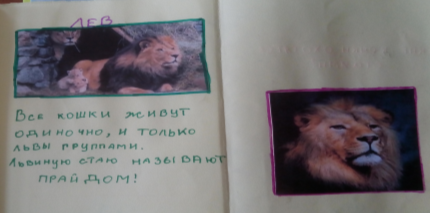 ЛЕВ
ВСЕ КОШКИ ЖИВУТ
ОДИНОЧНО, И ТОЛЬКО
ЛЬВЫ ГРУППАМИ.
ЛЬВИНУЮ СТАЮ НАЗЫВАЮТ
ПРАЙДОМ!